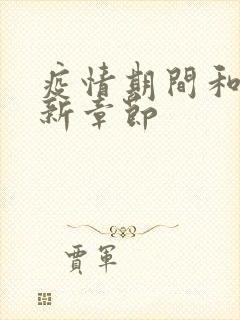 疫情期間和
新章節
賈軍